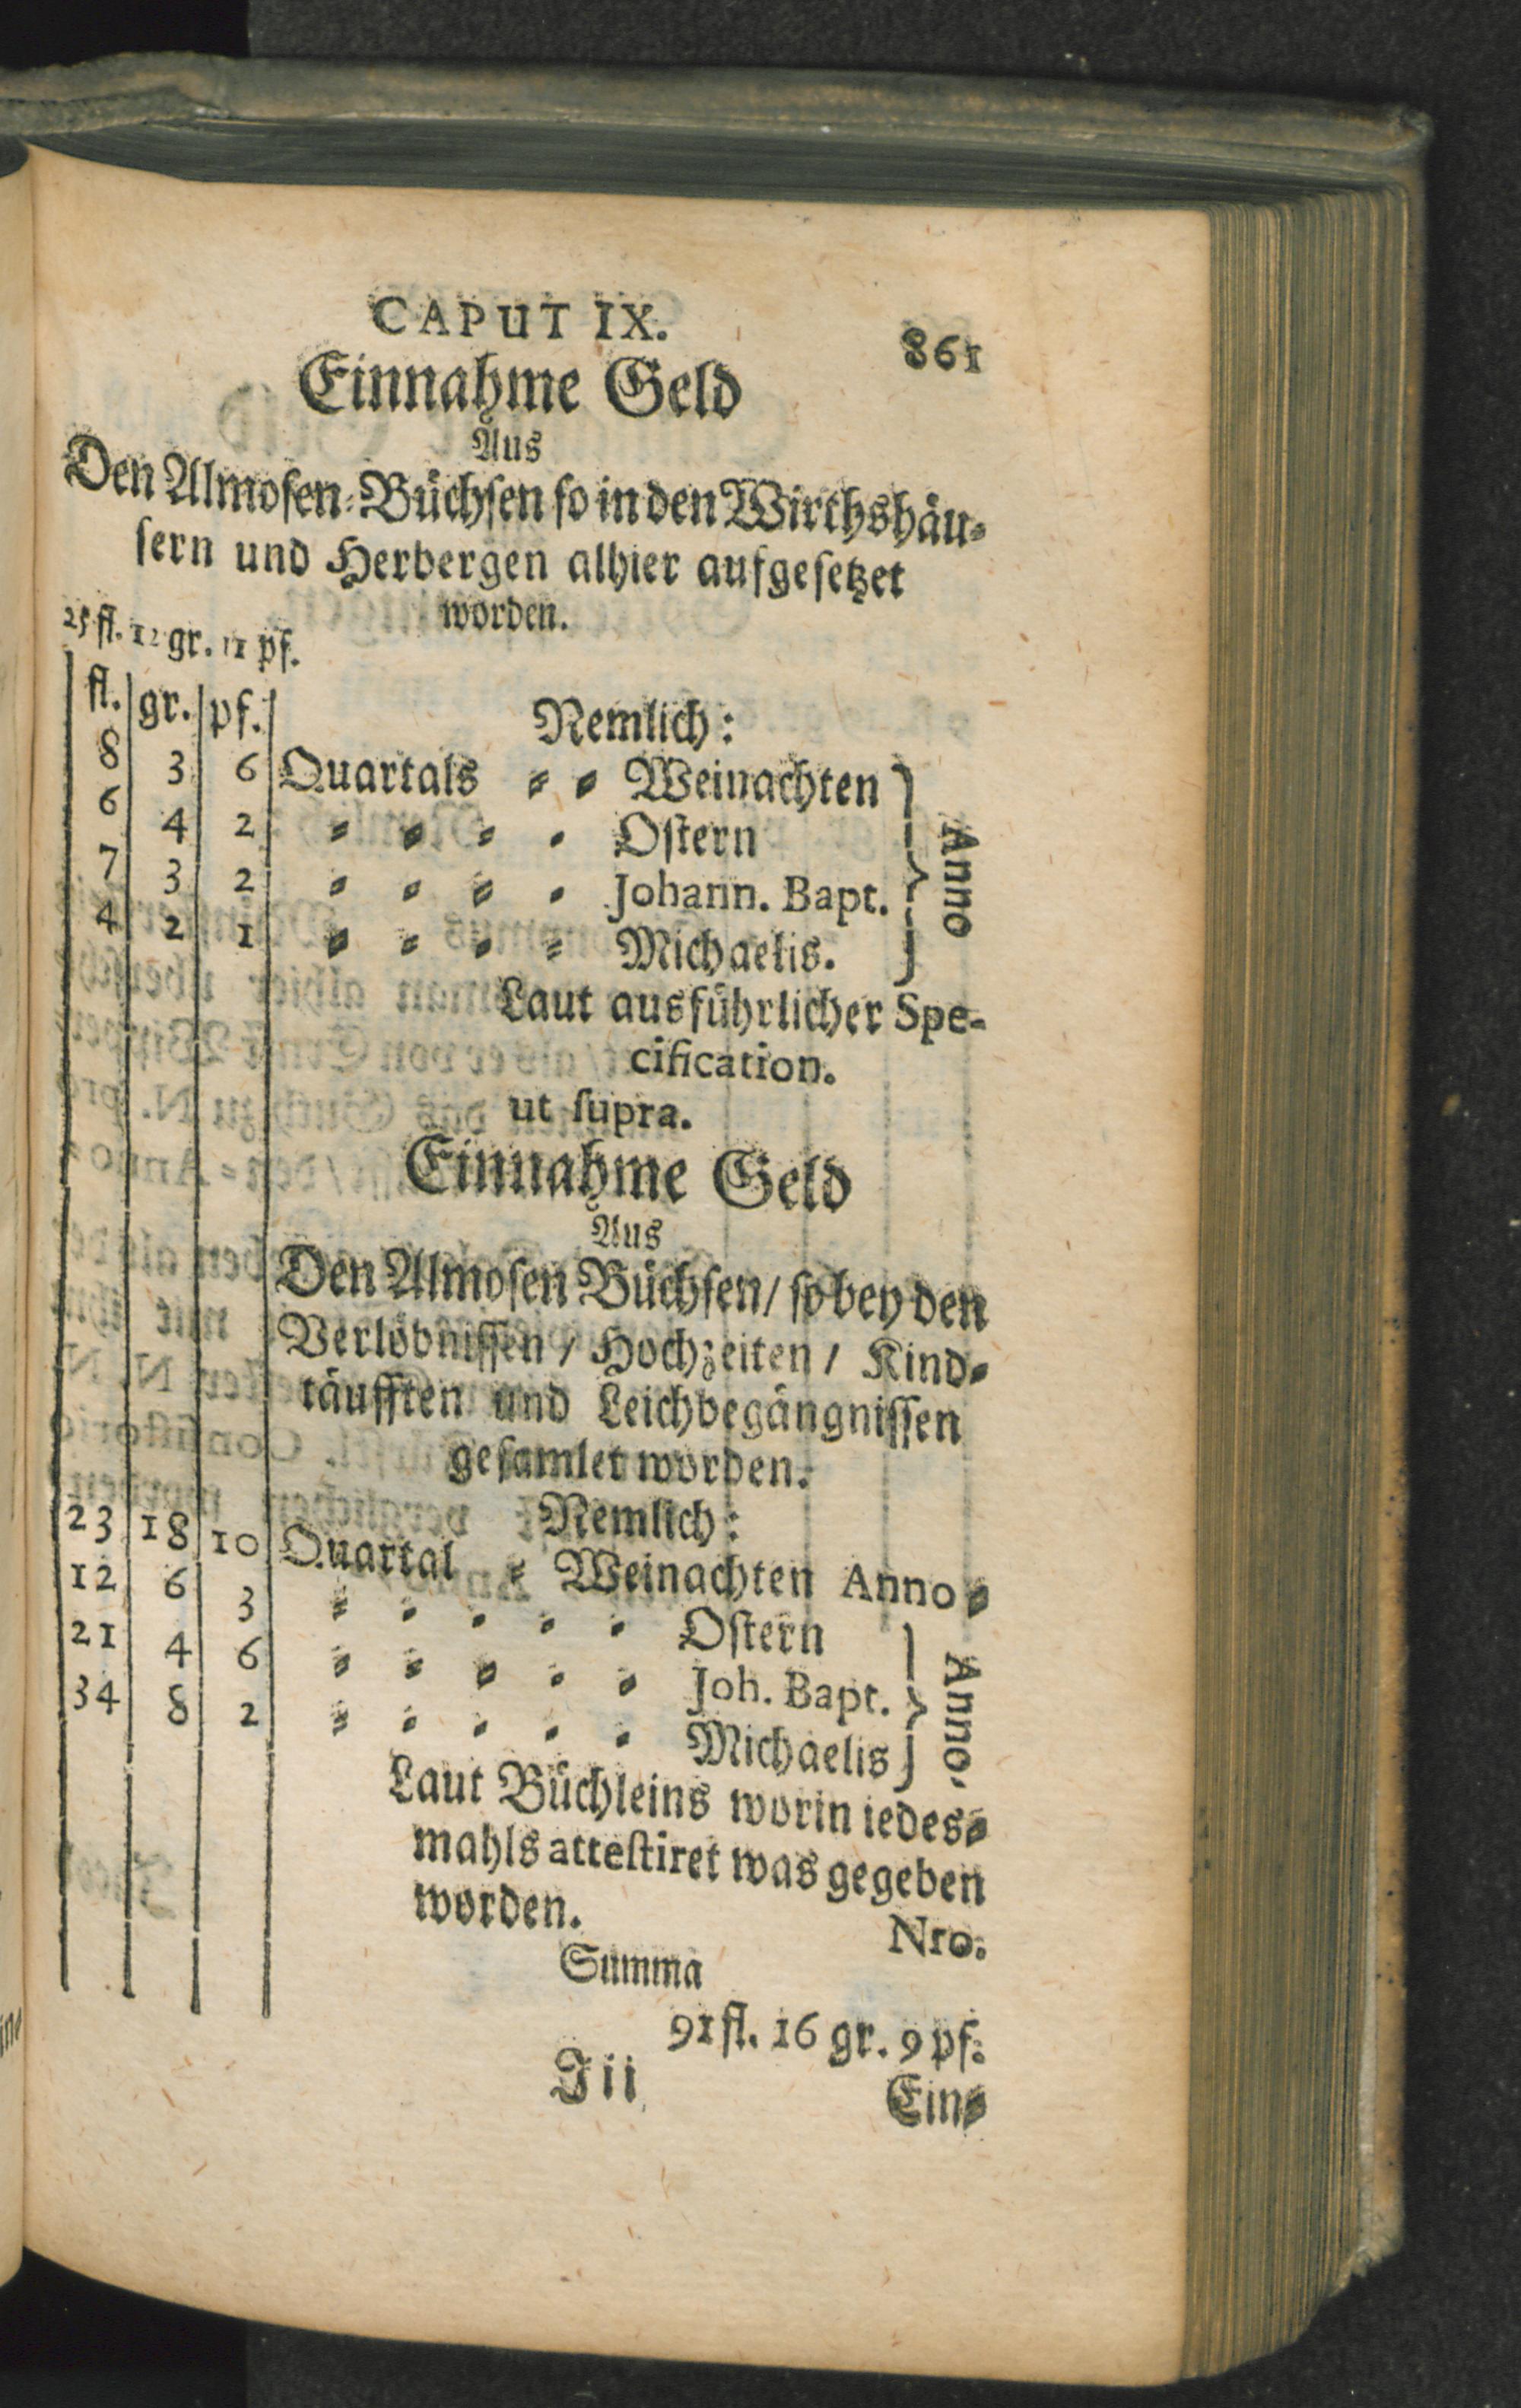 CAPUT IX. 861
Einnahme Geld
Aus
Den Almosen-Büchsen so in den Wirthshäu-
sern und Herbergen alhier aufgesetzet
worden.
25 fl. 12 gr. 11 pf.
fl. gr. pf. Nemlich:
8 3 6 Quartals - - Weinachten
6 4 2 - - - - Ostern
7 3 2 - - - - Johann. Bapt.
4 2 1 - - - - Michaelis.
Anno
Laut ausführlicher Spe-
cification.
ut supra.
Einnahme Geld
Aus
Den Almosen Büchsen/ so bey den
Verlöbnissen / Hochzeiten / Kind-
täufften und Leichbegängnissen
gesamlet worden.
Nemlich:
23 18 10 Quartal - Weinachten Anno -
12 6 3 - - - - - Ostern
21 4 6 - - - - - Joh. Bapt.
34 8 2 - - - - - Michaelis
Anno.
Laut Büchleins worin iedes-
mahls attestiret was gegeben
worden. Nro.
Summa
91 fl. 16 gr. 9 pf.
Jii Ein-